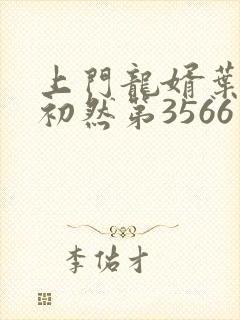 上門龍婿葉
初然第3566
李佑才